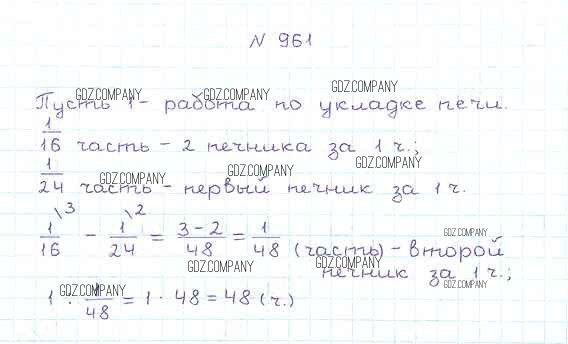 N 961
Пусть 1 - работа по укладке печи.
1/16 часть - 2 печника за 1 ч.;
1/24 часть - первый печник за 1 ч.
1/16 \3 - 1/24 \2 = 3-2/48 = 1/48 (часть) - второй
печник за 1 ч.;
1 : 1/48 = 1 · 48 = 48 (ч.)
GDZ.COMPANY
GDZ.COMPANY
GDZ.COMPANY
GDZ.COMPANY
GDZ.COMPANY
GDZ.COMPANY
GDZ.COMPANY
GDZ.COMPANY
GDZ.COMPANY
GDZ.COMPANY
GDZ.COMPANY